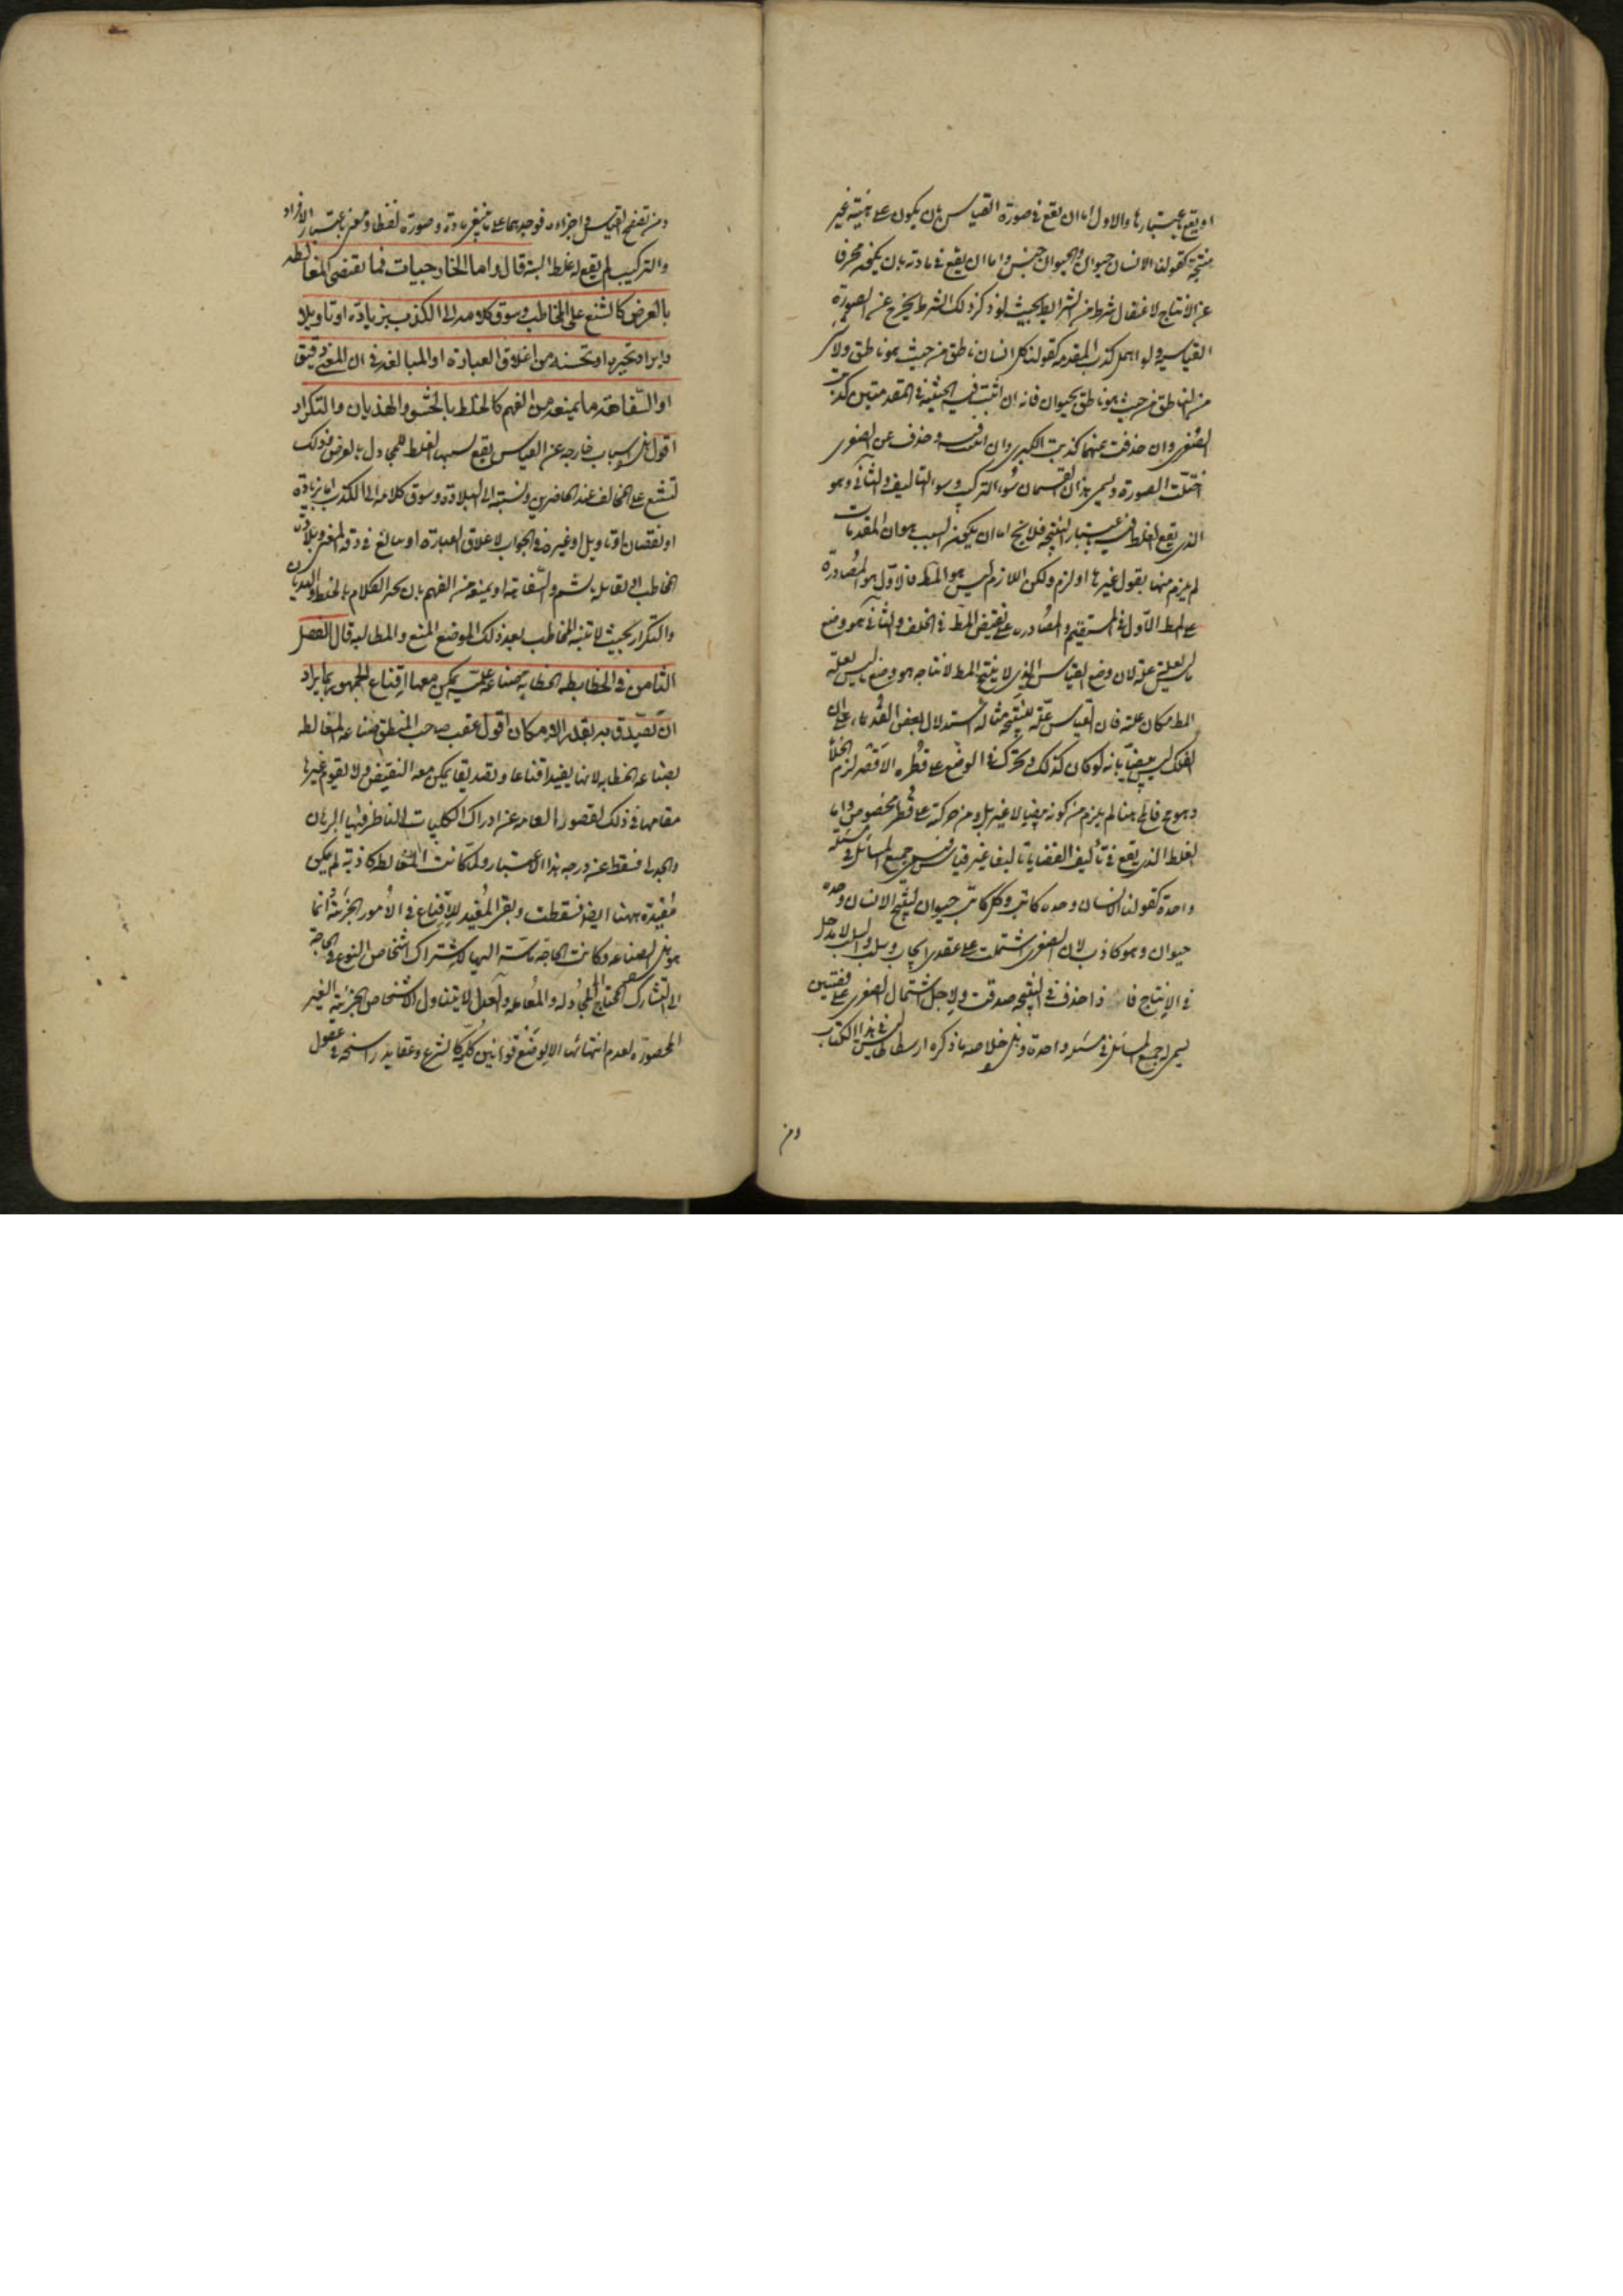 او يقع باعتبارها والاول اما ان تقع في صورة القياس بان يكون على هيئة غير
منتجة كقولنا الانسان حيوان والحيوان جنس واما ان يقع في مادته بان يكون محرفا
عن الانتاج لاغفال شرط من الشرائط بحيث لو ذكر ذلك الشرط يخرج عن الصورة
القياسية ولو اهمل كذب المقدمة كقولنا كل انسان ناطق من حيث هو ناطق ولا شي
من الناطق من حيث هو ناطق بحيوان فانه ان اثبت قيد الحيثية في المقدمتين كذبت
الصغرى وان حذفت عنهما كذبت الكبرى وان اثبت فيه وحذف عن الصغرى
اختلت الصورة ويسمى هذان القسمان سوء التركيب وسوء التاليف والثاني وهو
الذي يقع الغلط فيه باعتبار النتيجة فلا يخ اما ان يكون السبب هو ان المقدمات
لم يلزم منها بقول غيرها او لزم ولكن اللازم ليس هو المط فالاول هو المصادرة
على المط الاول في المستقيم والمصادرة على نقيض المط في الخلف والثاني هو وضع
ما ليس بعلة علة لان وضع القياس الذي لا ينتج المط لانتاجه هو وضع ما ليس بعلة
المط مكان علته فان القياس علة للنتيجة مثاله استدلال بعض القدماء على ان
الفلك ليس بيضيا بانه لو كان كذلك وتحرك في الوضع على قطره الاقصر لزم الخلأ
وهو مح فالمح هنا لم يلزم من كونه بيضيا لا غير بل ومن حركته على قطر مخصوص واما
الغلط الذي يقع في تأليف القضايا تاليفا غير قياسي جمع المسائل في مسئلة
واحدة كقولنا الانسان وحده كاتب وكل كاتب حيوان لينتج الانسان وحده
حيوان وهو كاذب لان الصغرى اشتملت على عقدي ايجاب وسلب والسلب لا مدخل
في الانتاج فاذا حذفت في النتيجة صدقت ولاجل اشتمال الصغرى على قضيتين
يسمى له جمع المسائل في مسئلة واحدة وهي خلاصة ما ذكره ارسطاطاليس في هذا الكتاب
ومن
ومن تصفح القياس في اجزاءه فوجدها على ما ينبغي مادة وصورة لفظا ومعنى باعتبار الافراد
والتركيب لم يقع له غلط البتة قال واما الخارجيات فما تقتضي المغالطة
بالعرض كالشنع على المخاطب وسوق كلامه الى الكذب بزيادة او تاويلا
وايراد تحيره او تحسنه من اغلاق العبارة او المبالغة في ان المعنى دقيق
او السفاهة وما يمنعه من الفهم كالخلط بالحشو والهذيان والتكرار
اقول هي اسباب خارجة عن القياس يقع بسببها الغلط للمجادل بالعرض فمن ذلك
تشنع على المخالف عند الحاضرين ونسبته الى البلادة وسوق كلامه الى الكذب اما بزيادة
او نقصان او تاويل او غيره في الجواب لاغلاق العبارة او يبالغ في دقة المعنى وبلادة
المخاطب او يقابله بالشتم والسفاهة او يمنعه من الفهم بان يحشر الكلام بالخلط والهذيان
والتكرار بحيث لا تنبه المخاطب بعد ذلك لموضع المنع والمطالبة قال الفصل
الثامن في الخطابة الخطابة صناعة علمية يمكن معها اقناع الجمهور بما يراد
ان يصدق به بقدر الامكان اقول عقب صاحب المنطق صناعة المغالطة
بصناعة الخطابة لانها يفيد اقناعا وتصديقا يمكن معه النقيض ولا يقوم غيرها
مقامها في ذلك لقصور العامة عن ادراك الكليات الناظر فيها البرهان
والجدل فسقط عن درجه هذا الاعتبار ولما كانت المغالط كاذبة لم يكن
مفيدة ههنا ايضا فسقطت وبقى المفيد للاقناع في الامور الجزئية انما
هو هذه الصناعة وكانت الحاجة ماسة اليها لاشتراك اشخاص النوع في الحاجة
الى التشارك المحتاج الى المجادلة والمعاملة والعدل لا يتناول الاشخاص الجزئية الغير
المحصورة لعدم انتهائها الا بوضع قوانين كلية كالشرع وعقايد راسخة في عقول